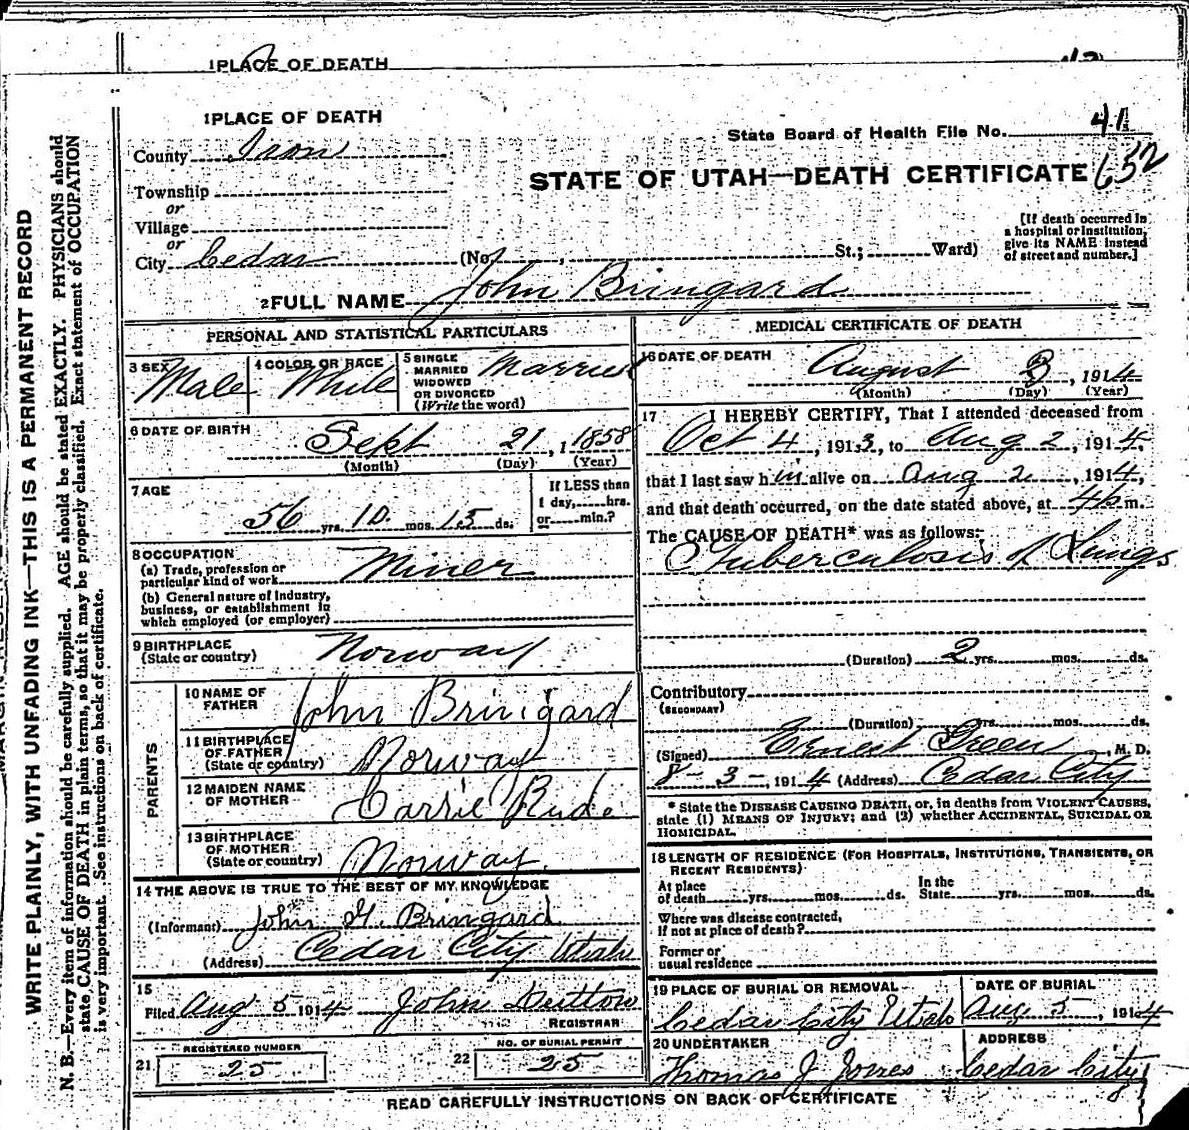 1 PLACE OF DEATH
1 PLACE OF DEATH
State Board of Health File No. 41
County Iron
STATE OF UTAH—DEATH CERTIFICATE 652
Township
or
Village
or
City Cedar (No. , St.; Ward)
[If death occurred in
a hospital or institution,
give its NAME instead
of street and number.]
2 FULL NAME John Bringard
PERSONAL AND STATISTICAL PARTICULARS
3 SEX Male
4 COLOR OR RACE White
5 SINGLE
MARRIED
WIDOWED
OR DIVORCED
(Write the word) Married
6 DATE OF BIRTH Sept 21, 1 1858
(Month) (Day) (Year)
7 AGE
56 yrs. 10 mos. 15 ds.
If LESS than
1 day, hrs.
or min.?
8 OCCUPATION
(a) Trade, profession or
particular kind of work Miner
(b) General nature of Industry,
business, or establishment in
which employed (or employer)
9 BIRTHPLACE
(State or country) Norway
PARENTS
10 NAME OF
FATHER John Bringard
11 BIRTHPLACE
OF FATHER
(State or country) Norway
12 MAIDEN NAME
OF MOTHER Carrie Rude
13 BIRTHPLACE
OF MOTHER
(State or country) Norway
14 THE ABOVE IS TRUE TO THE BEST OF MY KNOWLEDGE
(Informant) John G. Bringard
(Address) Cedar City Utah
15
Filed Aug 5 1914 John
REGISTRAR
21 REGISTERED NUMBER
25
22 NO. OF BURIAL PERMIT
25
MEDICAL CERTIFICATE OF DEATH
16 DATE OF DEATH August 3, 1914
(Month) (Day) (Year)
17 I HEREBY CERTIFY, That I attended deceased from
Oct 4, 1913, to Aug 2, 1914,
that I last saw him alive on Aug 2, 1914,
and that death occurred, on the date stated above, at m.
The CAUSE OF DEATH* was as follows:
Tuberculosis of Lungs
(Duration) 2 yrs. mos. ds.
Contributory
(SECONDARY)
(Duration) yrs. mos. ds.
(Signed) Ernest Green, M. D.
8-3-, 1914 (Address) Cedar City
* State the DISEASE CAUSING DEATH, or, in deaths from VIOLENT CAUSES,
state (1) MEANS OF INJURY; and (2) whether ACCIDENTAL, SUICIDAL OR
HOMICIDAL.
18 LENGTH OF RESIDENCE (FOR HOSPITALS, INSTITUTIONS, TRANSIENTS, OR
RECENT RESIDENTS)
At place
of death yrs. mos. ds.
In the
State yrs. mos. ds.
Where was disease contracted,
if not at place of death?
Former or
usual residence
19 PLACE OF BURIAL OR REMOVAL
Cedar City Utah
DATE OF BURIAL
Aug. 5, 1914
20 UNDERTAKER
Thomas J Jones
ADDRESS
Cedar City
READ CAREFULLY INSTRUCTIONS ON BACK OF CERTIFICATE
WRITE PLAINLY, WITH UNFADING INK—THIS IS A PERMANENT RECORD
N. B.—Every item of information should be carefully supplied. AGE should be stated EXACTLY. PHYSICIANS should
state CAUSE OF DEATH in plain terms, so that it may be properly classified. Exact statement of OCCUPATION
is very important. See instructions on back of certificate.